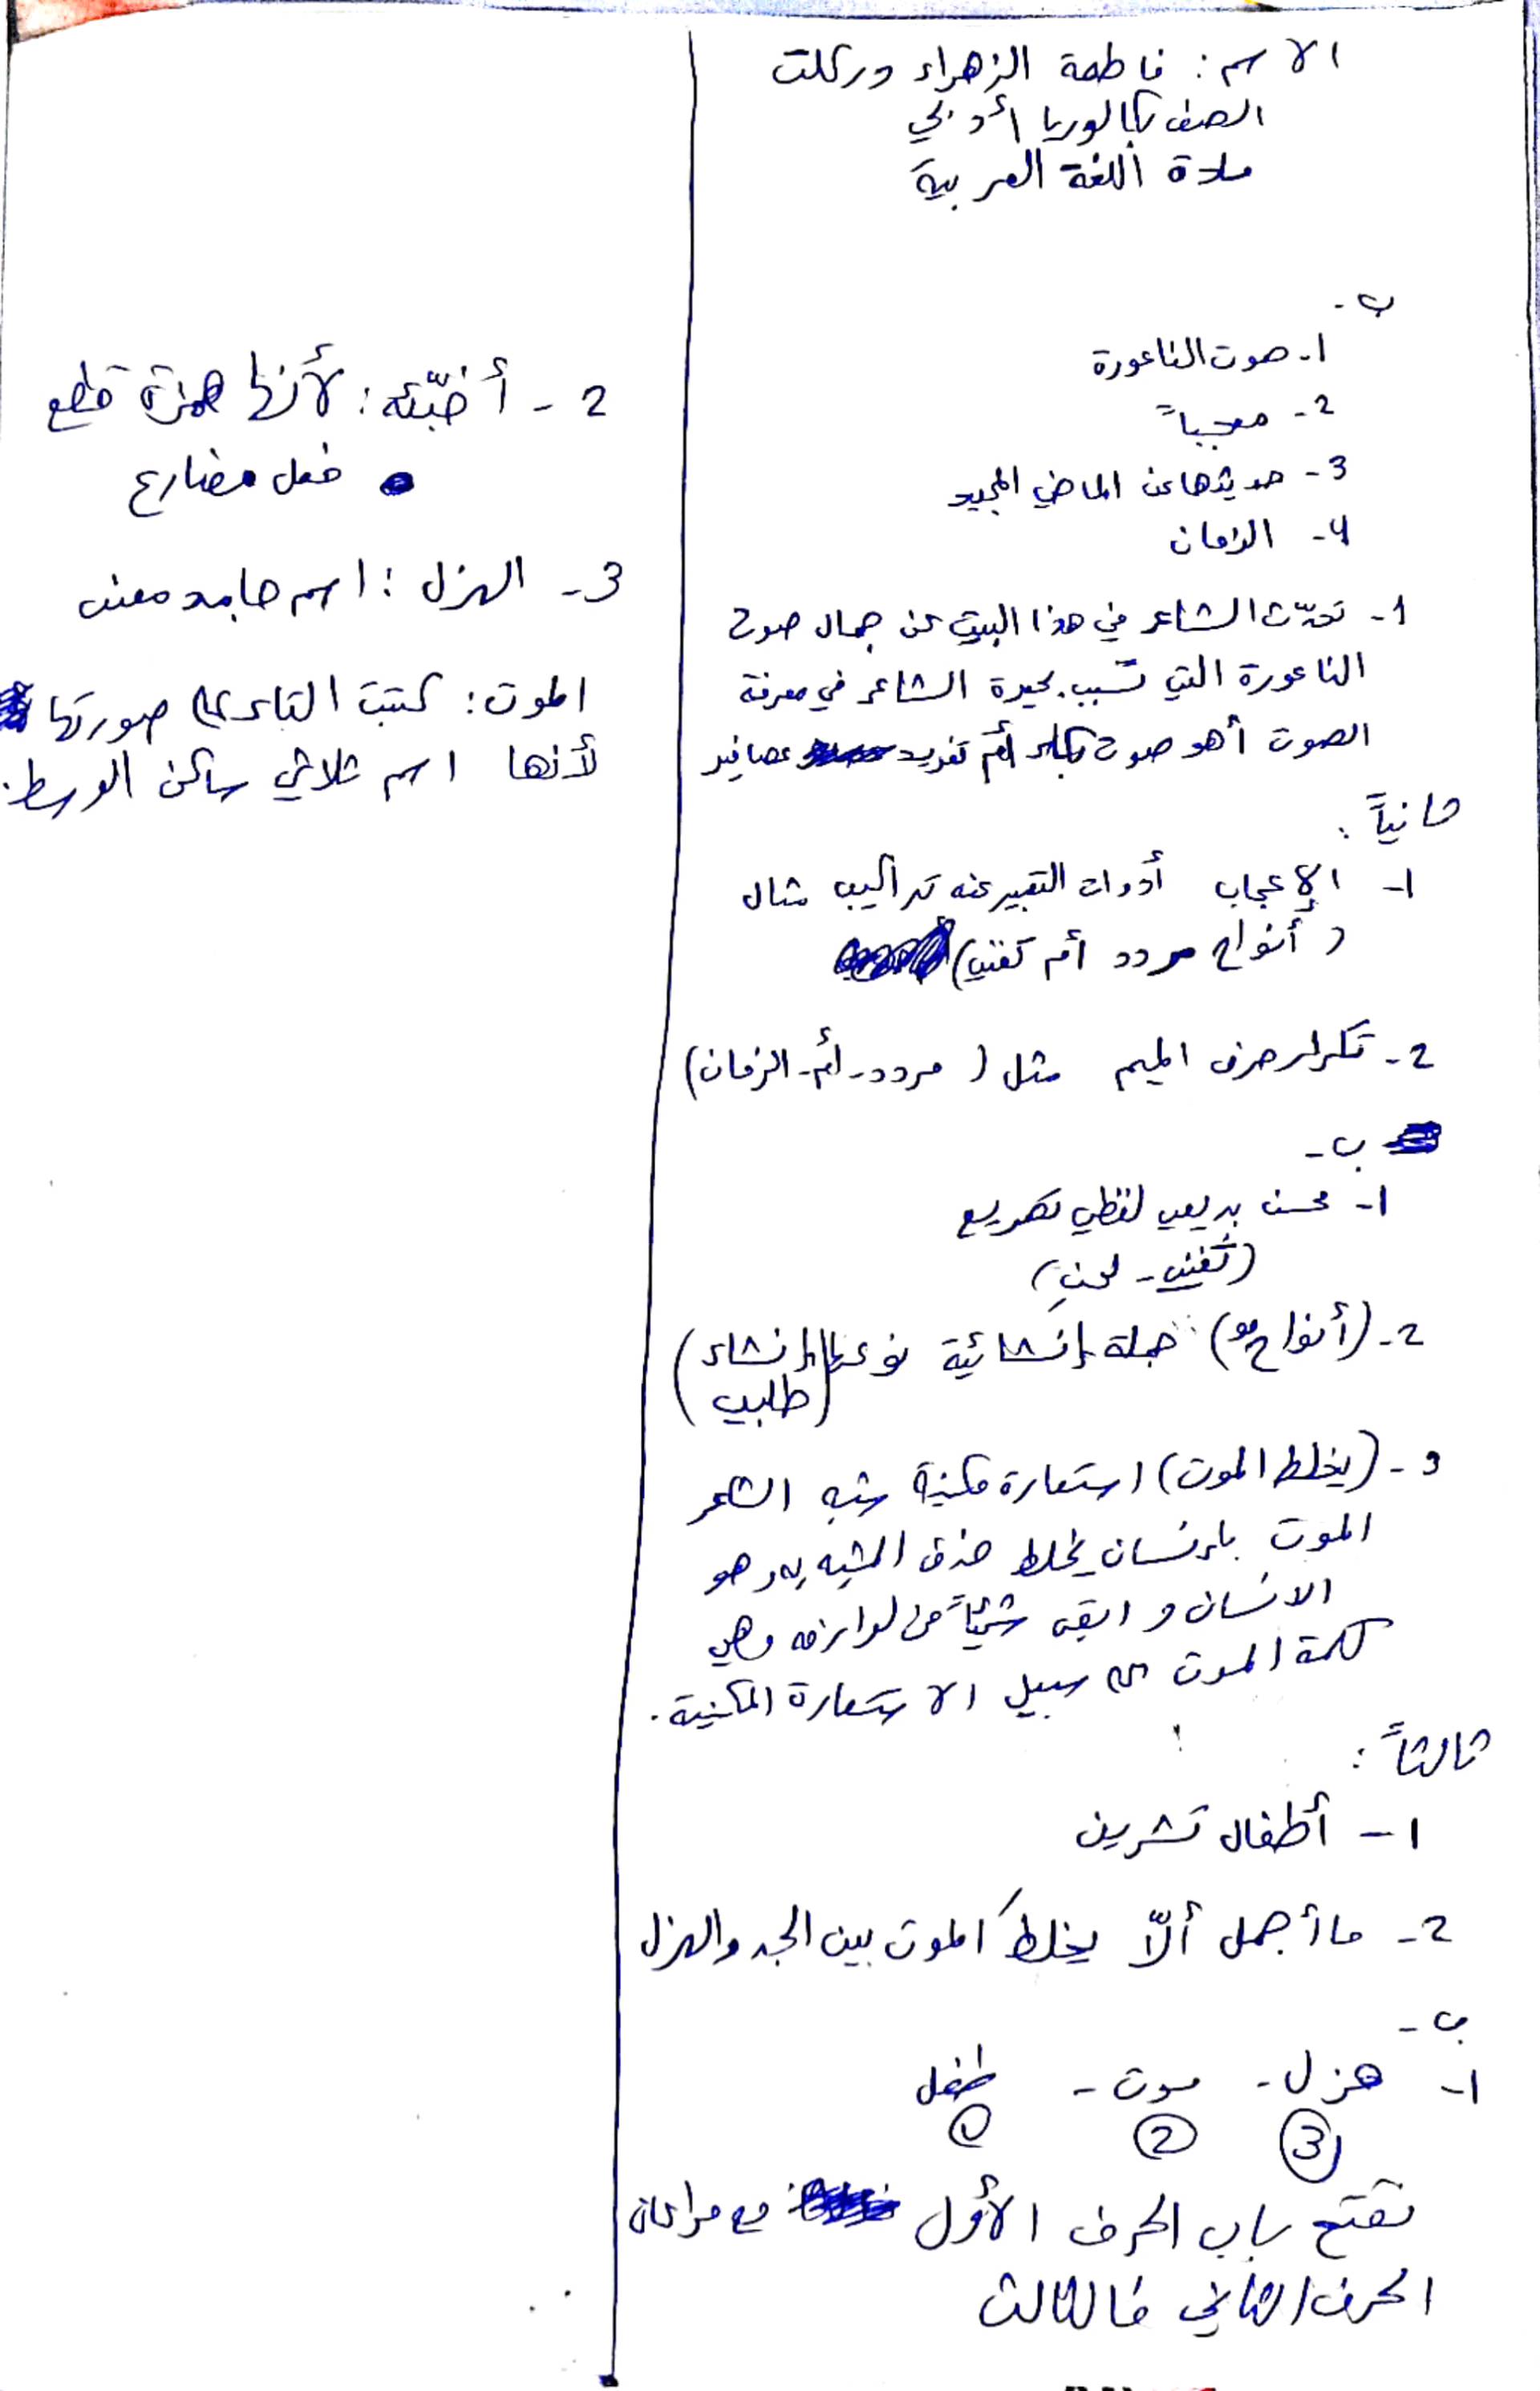 الاسم: فاطمة الزهراء
الصف بكالوريا أدبي
مادة اللغة العربية
ب-
1- صوت الناعورة
2- معجباً
3- حديثها عن الماضي المجيد
4- الزمان
1- تحدّث الشاعر في هذا البيت عن جمال صوت
الناعورة التي تسبب بحيرة الشاعر في معرفة
الصوت أهو صوت بكاء أم تغريد عصافير
ثانياً:
1- الإعجاب أدوات التعبير عنه تراكيب مثال
(أنواح مردد أم تغني)
2- تكرار حرف الميم مثل (مردد - أم - الزمان)
ب-
1- محسن بديعي لفظي تصريع
(تغني - لحنِ)
2- (أنواح) جملة إنشائية نوعها (إنشاء
طلبي)
3- (يخلط الموت) استعارة مكنية شبه الشاعر
الموت بإنسان يخلط حذف المشبه به وهو
الانسان و ابقى شيئاً من لوازمه وهي
كلمة الموت على سبيل الاستعارة المكنية.
ثالثاً:
1- أطفال تشرين
2- ما أجمل ألّا يخلطَ الموت بين الجد والهزل
ب-
1- هزل - موت - طفل
3 2 1
نفتح باب الحرف الأول مع مراعاة
الحرف الثاني فالثالث
2- أخبّئه: لأنها همزة قطع
فعل مضارع
3- الهزل: اسم جامد معنى
الموت: كتبت التاء على صورتها
لأنها اسم ثلاثي ساكن الوسط.